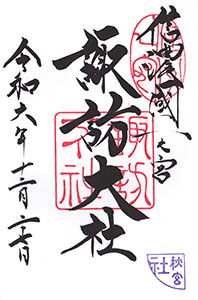 信濃國一之宮
諏訪大社
令和六年十二月二十七日
諏訪大社
秋宮社